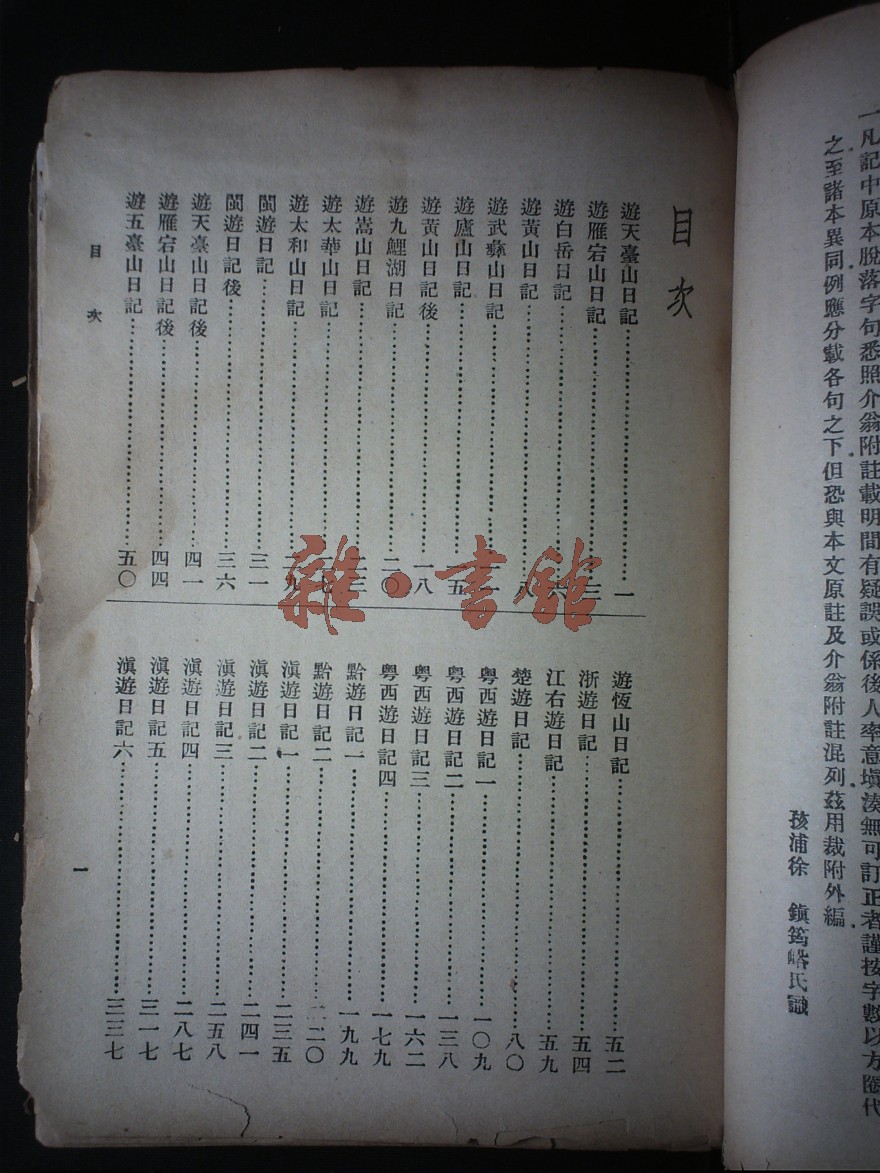 一凡記中原本脫落字句悉照介翁附註載明間有疑誤或係後人率意塡湊無可訂正者謹按字數以方匡代
之至諸本異同例應分載各句之下但恐與本文原註及介翁附註混列茲用裁附外編
孩浦徐 鎭筠峪氏識
目次
遊天臺山日記 一
遊雁宕山日記 三
遊白岳日記 六
遊黃山日記 八
遊武彝山日記
遊廬山日記 五
遊黃山日記後 一八
遊九鯉湖日記 二〇
遊嵩山日記
遊太華山日記
遊太和山日記 二九
閩遊日記 三一
閩遊日記後 三六
遊天臺山日記後 四一
遊雁宕山日記後 四四
遊五臺山日記 五〇
遊恆山日記 五二
浙遊日記 五四
江右遊日記 五九
楚遊日記 八〇
粵西遊日記一 一〇九
粵西遊日記二 一三八
粵西遊日記三 一六二
粵西遊日記四 一七九
黔遊日記一 一九九
黔遊日記二 二二〇
滇遊日記一 二三五
滇遊日記二 二四一
滇遊日記三 二五八
滇遊日記四 二八七
滇遊日記五 三一七
滇遊日記六 三三七
目次
一
雜·書館